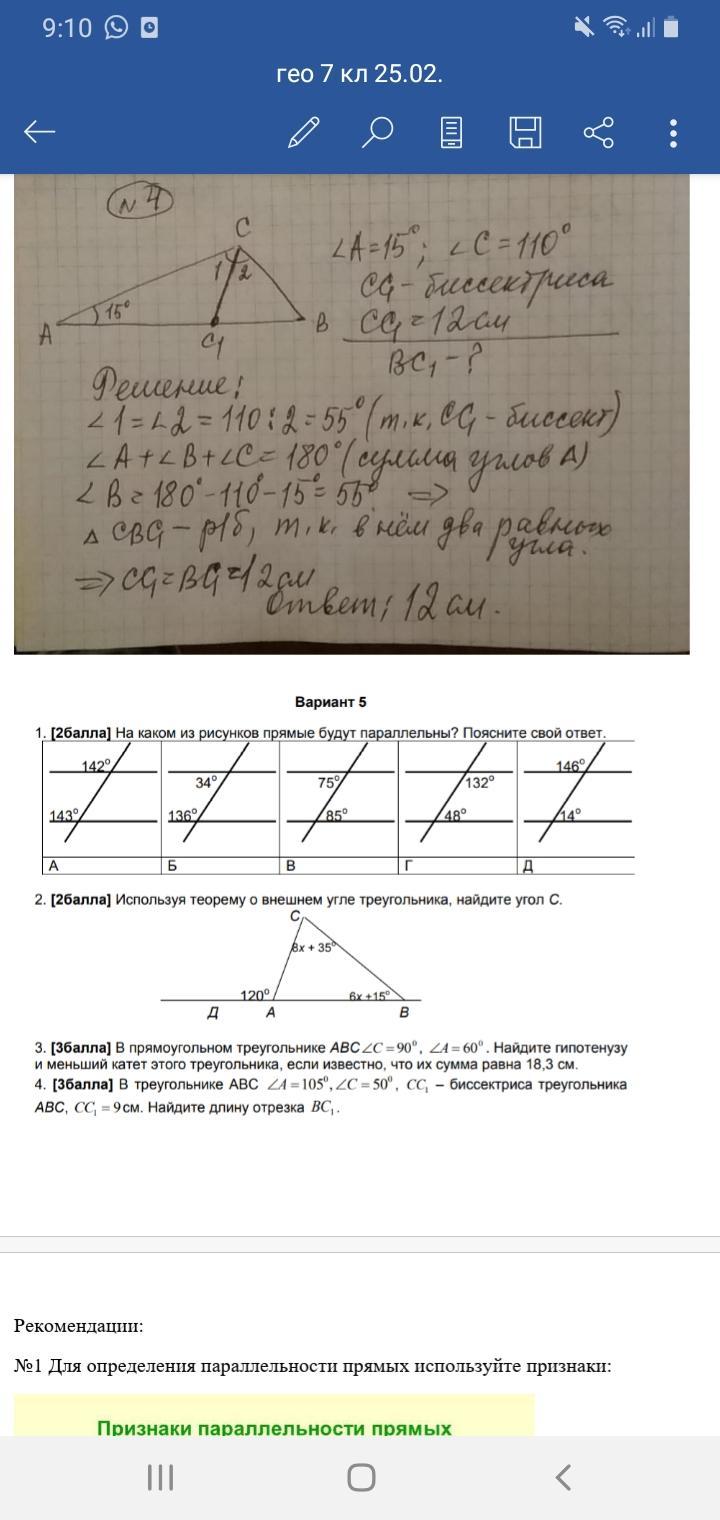 9:10
гео 7 кл 25.02.
№4
C
1 2
15°
A
C₁
B
∠A=15°; ∠C=110°
CC₁ - биссектриса
CC₁ = 12см
BC₁ - ?
Решение:
∠1=∠2 = 110:2=55° (т.к. CC₁ - биссект)
∠A+∠B+∠C= 180° (сумма углов Δ)
∠B = 180°-110°-15°= 55° ⇒
Δ CBC₁ - р/б, т.к. в нём два равных
угла.
⇒ CC₁ = BC₁ = 12см
Ответ: 12см.
Вариант 5
1. [2балла] На каком из рисунков прямые будут параллельны? Поясните свой ответ.
142° 34° 75° 132° 146°
143° 136° 85° 48° 14°
А Б В Г Д
2. [2балла] Используя теорему о внешнем угле треугольника, найдите угол С.
C
8x + 35°
120° 6x +15°
Д А В
3. [3балла] В прямоугольном треугольнике ABC∠C=90°, ∠A=60°. Найдите гипотенузу
и меньший катет этого треугольника, если известно, что их сумма равна 18,3 см.
4. [3балла] В треугольнике АВС ∠A=105°,∠C=50°, CC₁ – биссектриса треугольника
АВС, CC₁ =9см. Найдите длину отрезка BC₁.
Рекомендации:
№1 Для определения параллельности прямых используйте признаки:
Признаки параллельности прямых